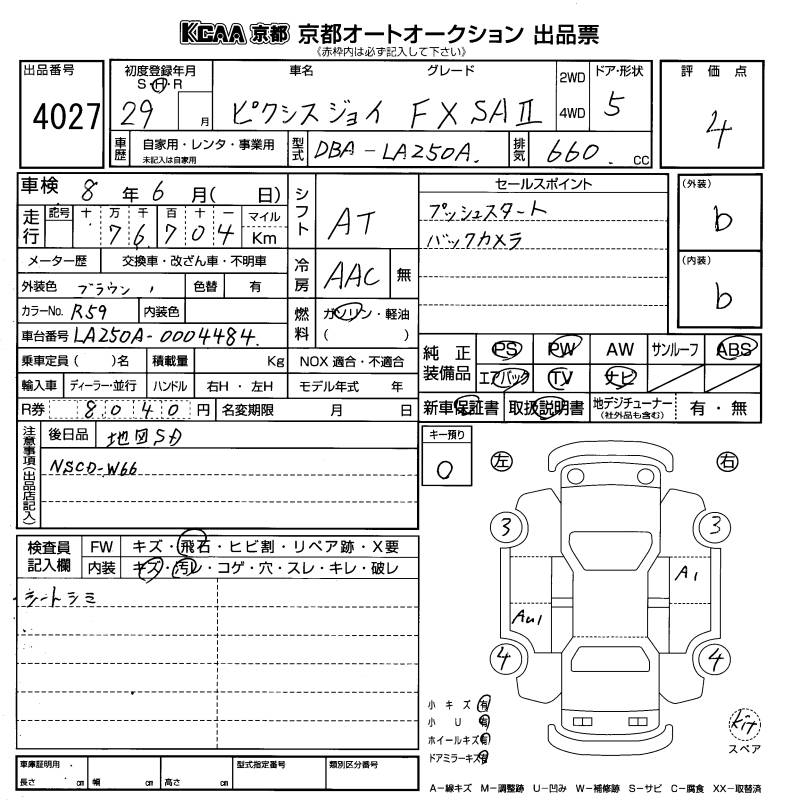 KCAA 京都 京都オートオークション 出品票
《赤枠内は必ず記入して下さい》
出品番号 4027
初度登録年月 S・H・R 29 月
車名 グレード ピクシスジョイ FX SAⅡ
2WD 4WD
ドア・形状 5
評価点 4
車歴 自家用・レンタ・事業用 未記入は自家用
型式 DBA-LA250A.
排気 660. CC
車検 8年 6月( 日)
シフト AT
セールスポイント
プッシュスタート
バックカメラ
(外装) b
(内装) b
走行 記号 十 万 千 百 十 一 マイル Km
76704
メーター歴 交換車・改ざん車・不明車
冷房 AAC 無
外装色 ブラウン 色替 有
カラーNo. R59 内装色
燃料 ガソリン・軽油 ( )
車台番号 LA250A-0004484.
乗車定員( )名 積載量 Kg NOX 適合・不適合
輸入車 ディーラー・並行 ハンドル 右H・左H モデル年式 年
R券 8040円 名変期限 月 日
純正装備品 PS PW AW サンルーフ ABS
エアバック TV ナビ
新車保証書 取扱説明書 地デジチューナー (社外品も含む) 有・無
注意事項(出品店記入)
後日品 地図SD
NSCD-W66
キー預り 0
左 右
3 3
A1
Au1
4 4
検査員記入欄 FW キズ・飛石・ヒビ割・リペア跡・X要
内装 キズ・汚レ・コゲ・穴・スレ・キレ・破レ
シートシミ
小キズ 有
小U 有
ホイールキズ 有
ドアミラーキズ 有
Kit
スペア
車庫証明用 長さ cm 幅 cm 高さ cm
型式指定番号 類別区分番号
A-線キズ M-調整跡 U-凹み W-補修跡 S-サビ C-腐食 XX-取替済